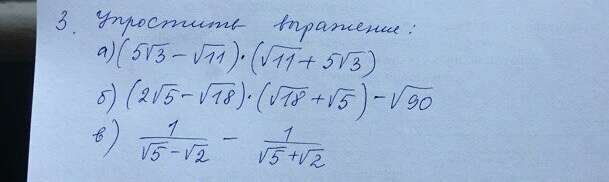 3. Упростить выражение:
а) (5√3 − √11)·(√11 + 5√3)
б) (2√5 − √18)·(√18 + √5) − √90
в) 1/(√5 − √2) − 1/(√5 + √2)